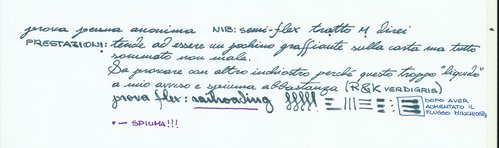 prova penna anonima NIB: semi-flex tratto M direi
PRESTAZIONI: tende ad essere un pochino graffiante sulla carta ma tutto
sommato non male.
Da provare con altro inchiostro perché questo troppo "liquido"
a mio avviso e spiuma abbastanza (R&K VERDIGRIS)
prova flex: railroading
DOPO AVER
AUMENTATO IL
FLUSSO D'INCHIOSTRO
*- SPIUMA!!!